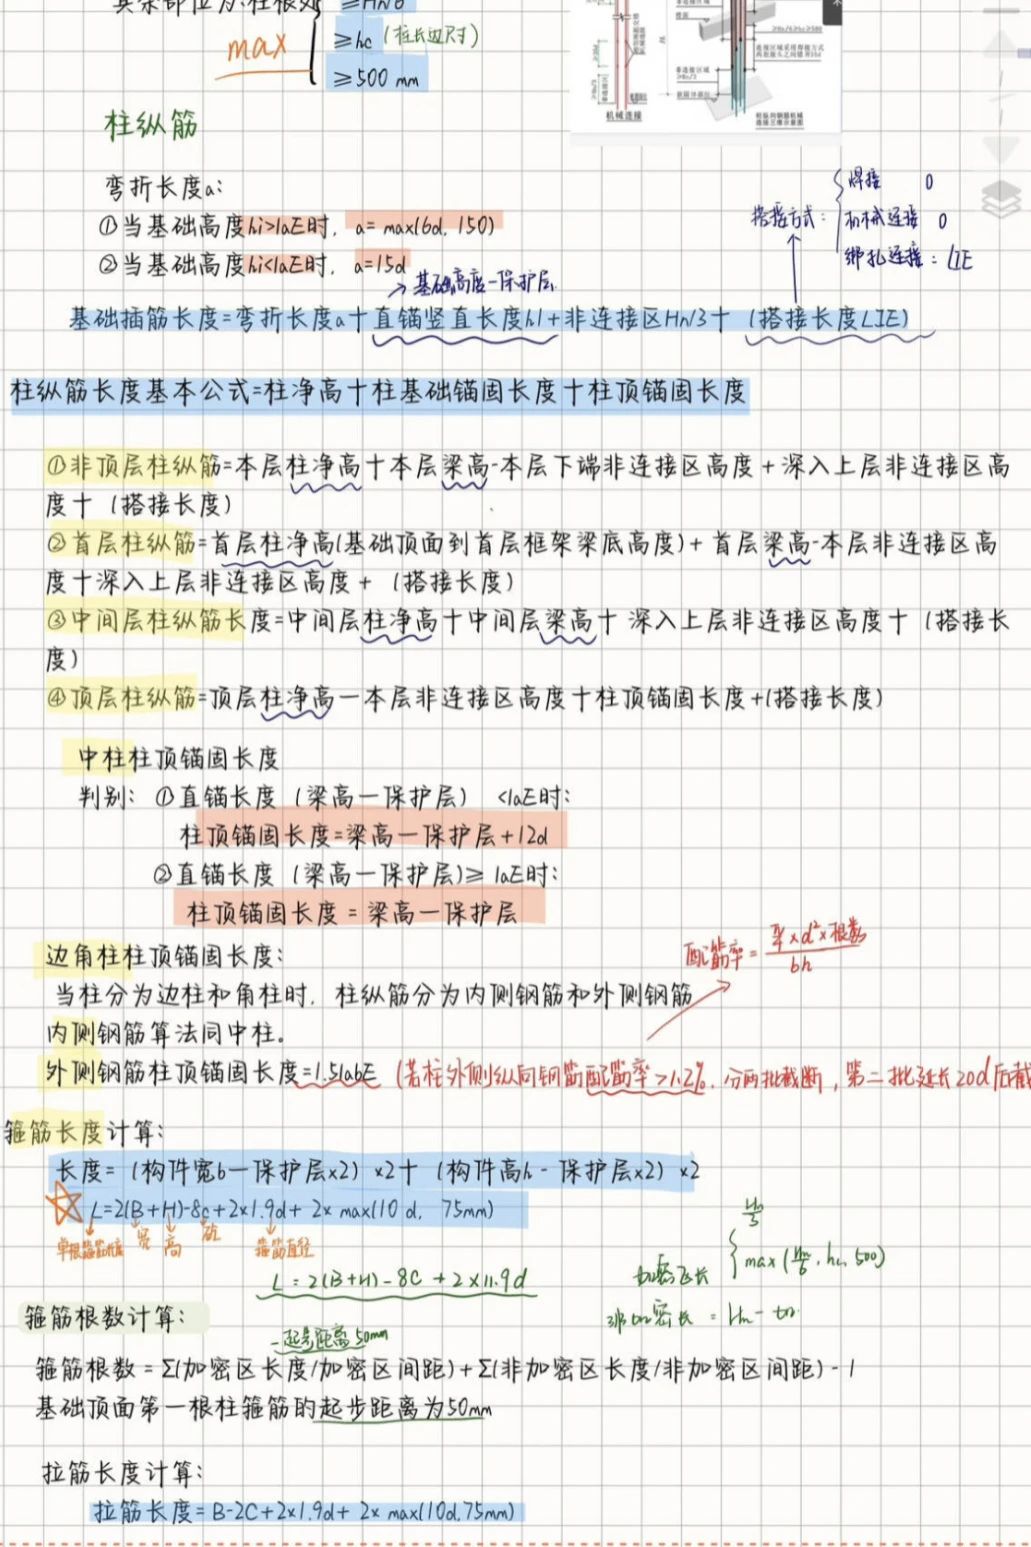 其余部位为:柱根处
≥Hn/6
max
≥hc (柱长边尺寸)
≥500 mm
机械连接
柱纵筋
弯折长度a:
①当基础高度hi>laE时, a=max(6d, 150)
②当基础高度hi<laE时, a=15d
→基础高度-保护层
搭接方式:
焊接 0
机械连接 0
绑扎连接:LlE
基础插筋长度=弯折长度a十直锚竖直长度h1+非连接区Hn/3十 (搭接长度LlE)
柱纵筋长度基本公式=柱净高十柱基础锚固长度十柱顶锚固长度
①非顶层柱纵筋=本层柱净高十本层梁高-本层下端非连接区高度+深入上层非连接区高
度十 (搭接长度)
②首层柱纵筋=首层柱净高(基础顶面到首层框架梁底高度)+首层梁高-本层非连接区高
度十深入上层非连接区高度+ (搭接长度)
③中间层柱纵筋长度=中间层柱净高十中间层梁高十 深入上层非连接区高度十 (搭接长
度)
④顶层柱纵筋=顶层柱净高一本层非连接区高度十柱顶锚固长度+(搭接长度)
中柱柱顶锚固长度
判别: ①直锚长度 (梁高一保护层) <laE时:
柱顶锚固长度=梁高一保护层+12d
②直锚长度 (梁高一保护层)≥ laE时:
柱顶锚固长度=梁高一保护层
边角柱柱顶锚固长度:
配筋率=
π/4×d²×根数
bh
当柱分为边柱和角柱时, 柱纵筋分为内侧钢筋和外侧钢筋
内侧钢筋算法同中柱。
外侧钢筋柱顶锚固长度=1.5labE (若柱外侧纵向钢筋配筋率>1.2%,分两批截断,第二批延长20d后截
箍筋长度计算:
长度= (构件宽b一保护层×2) ×2十 (构件高h-保护层×2) ×2
L=2(B+H)-8c+2×1.9d+ 2× max(10 d, 75mm)
单根箍筋长度 宽 高 箍筋直径
L=2(B+H)-8C+2×11.9d
Hn/3
max(Hn/6, hc, 500)
非加密长=Hn-
箍筋根数计算:
-起步距离50mm
箍筋根数=Σ(加密区长度/加密区间距)+Σ(非加密区长度/非加密区间距)-1
基础顶面第一根柱箍筋的起步距离为50mm
拉筋长度计算:
拉筋长度=B-2C+2×1.9d+ 2× max(10d,75mm)